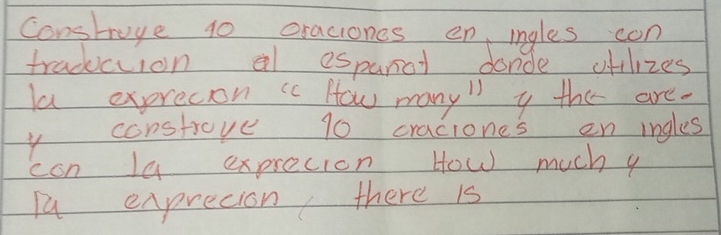 Construye 10 oraciones en ingles con
traduccion al español donde utilizes
la exprecion "How many" y the are-
y construye 10 oraciones en ingles
con la exprecion How much y
la exprecion, there is